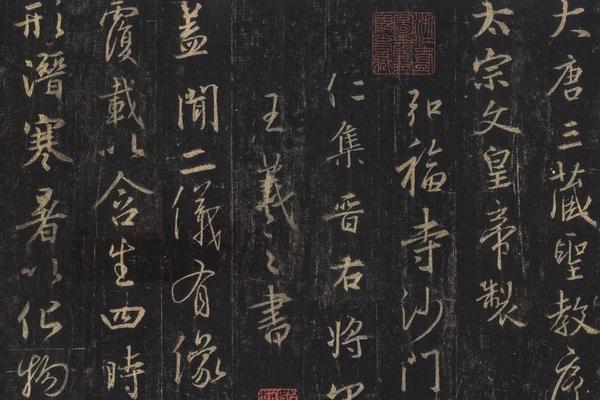 大唐三藏聖教序
太宗文皇帝製
弘福寺沙門
仁集晋右將軍
王羲之書
蓋聞二儀有像
覆載以含生四時
形潛寒暑以化物